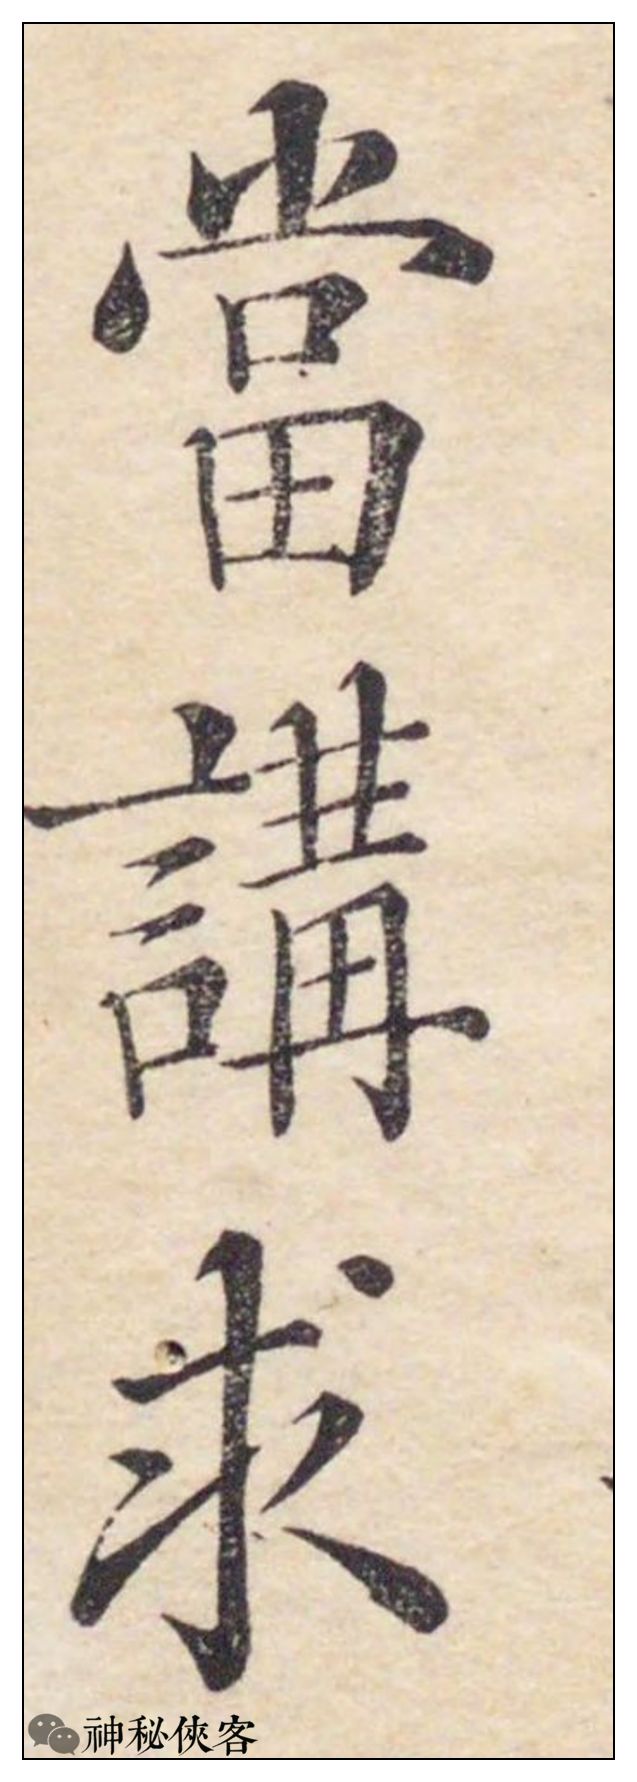 當講求
神秘俠客